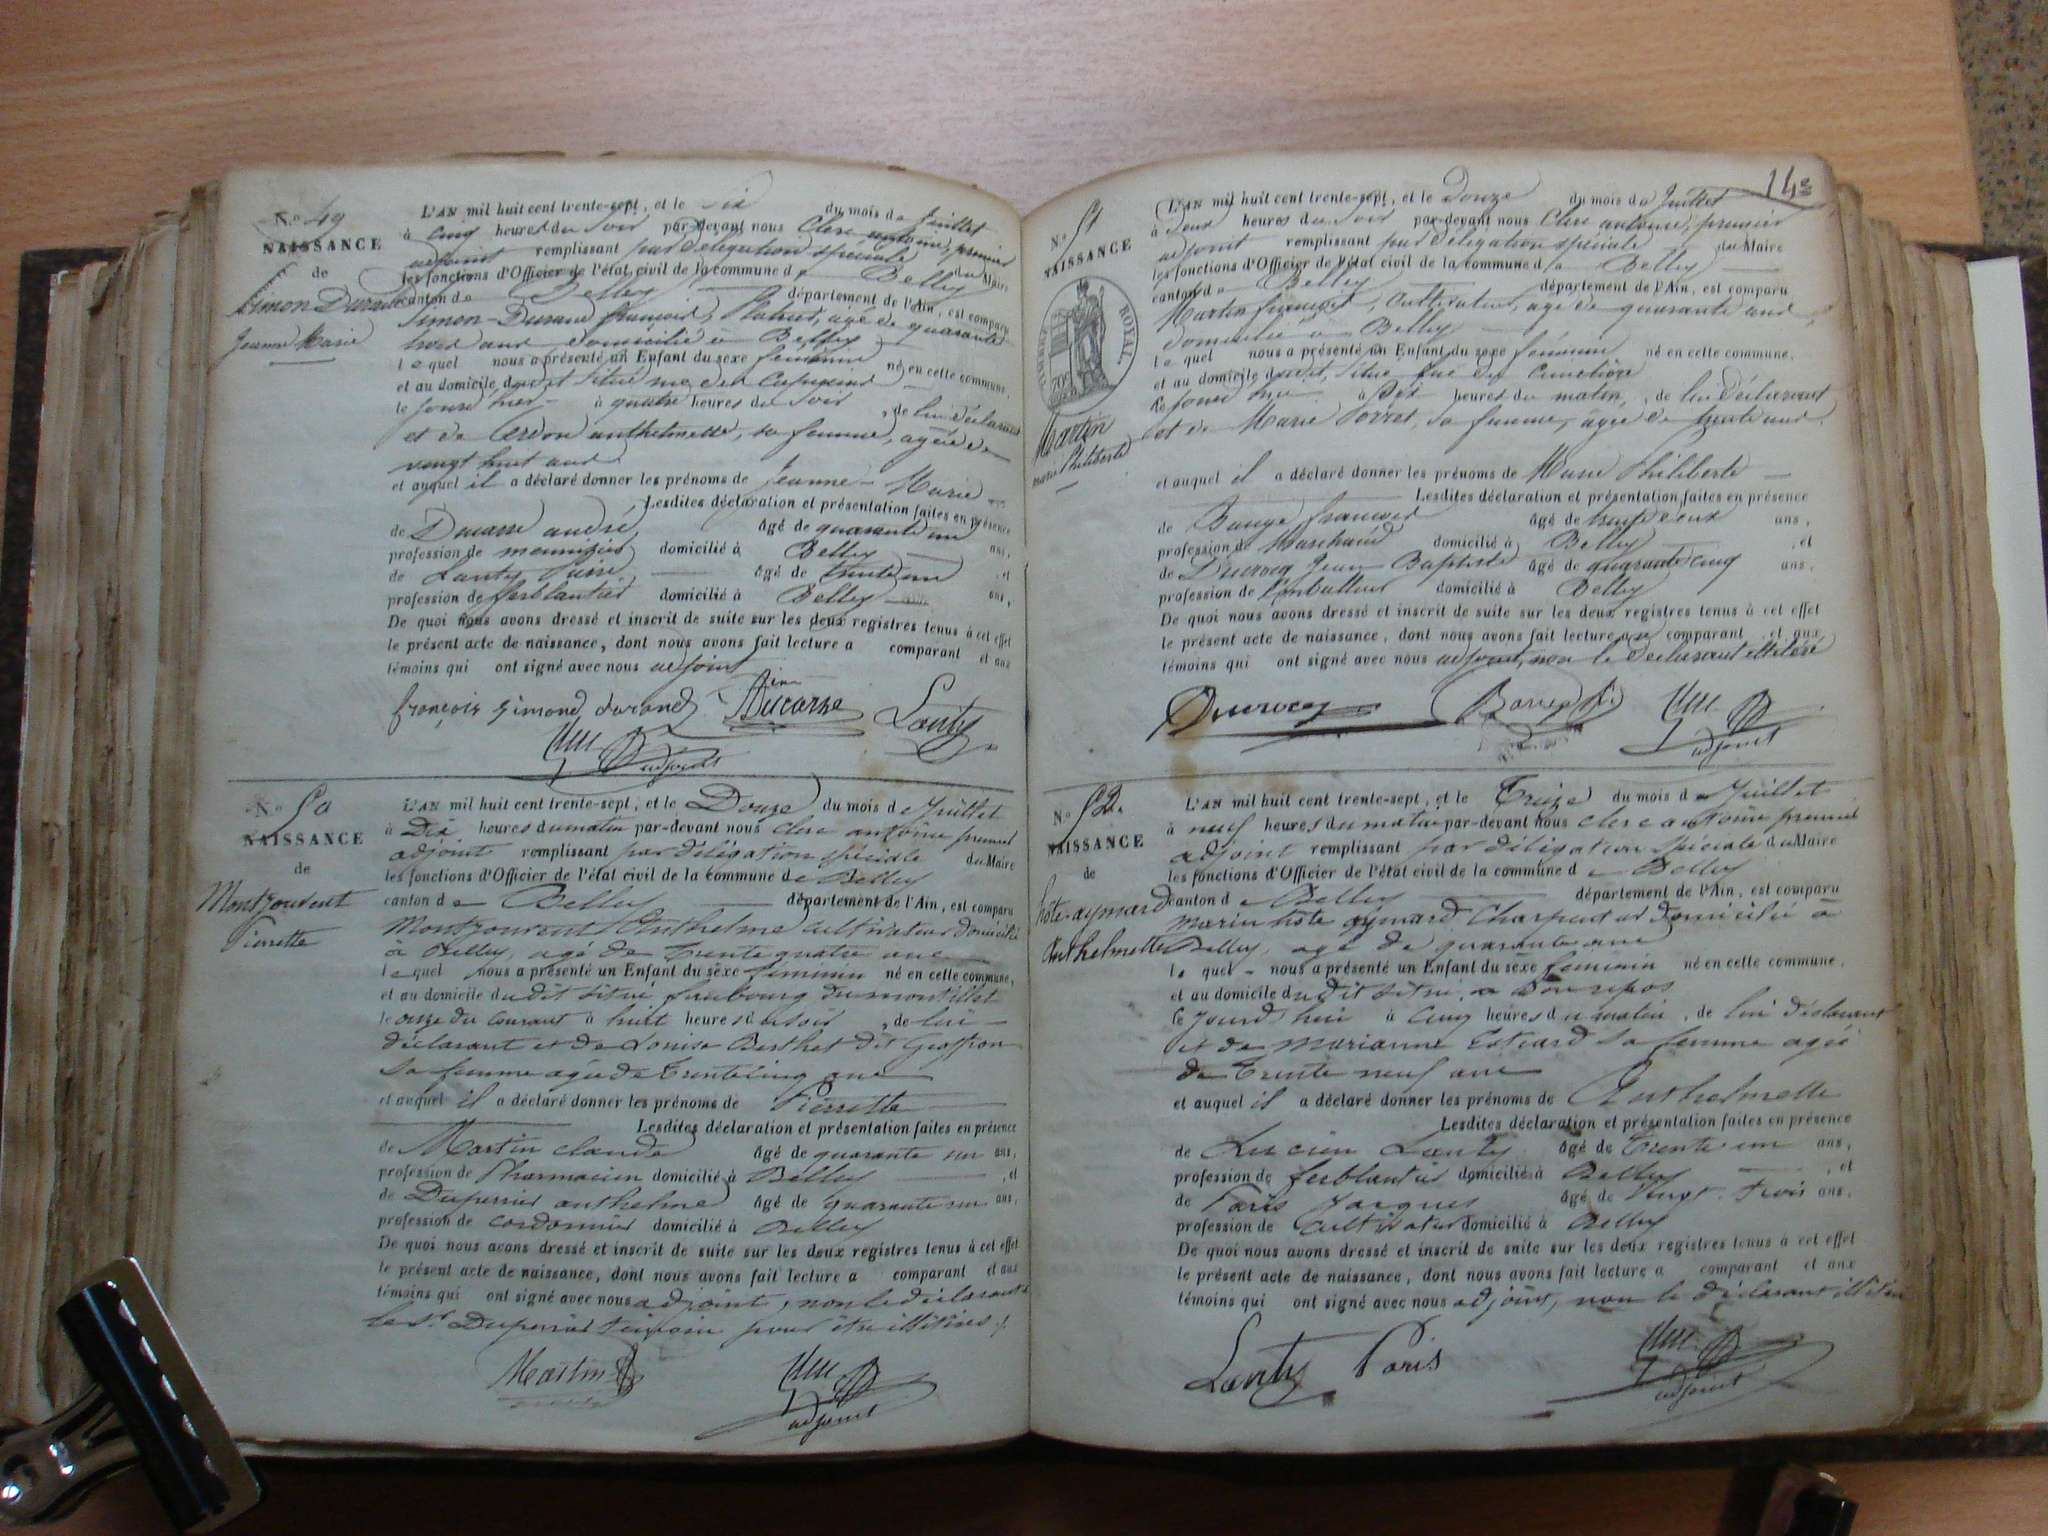 N.° 49
NAISSANCE
de
Simon Durand
Jeanne Marie
L'AN mil huit cent trente-sept, et le six du mois de Juillet
à cinq heures du soir par-devant nous Clerc antoine, premier
adjoint remplissant par délégation spéciale du Maire
les fonctions d'Officier de l'état civil de la commune de Belley
canton de Belley département de l'Ain, est comparu
Simon-Durand françois, agé de quarante
trois ans domicilié à Belley
lequel nous a présenté un Enfant du sexe féminin né en cette commune,
et au domicile dudit situé rue des Capucins
le jour hier à quatre heures du soir, de lui déclarant
et de Cerdon anthelmette, sa femme, agée de
vingt huit ans
et auquel il a déclaré donner les prénoms de Jeanne-Marie
Lesdites déclaration et présentation faites en présence
de Ducarre andré âgé de quarante un ans,
profession de menuisier domicilié à Belley et
de Lanty âgé de trente un ans,
profession de ferblantier domicilié à Belley
De quoi nous avons dressé et inscrit de suite sur les deux registres tenus à cet effet
le présent acte de naissance, dont nous avons fait lecture a comparant et aux
témoins qui ont signé avec nous adjoint
françois Simond durand Ducarre Lanty
adjoint
N.° 50
NAISSANCE
de
Montjouvent
Pierrette
L'AN mil huit cent trente-sept, et le Douze du mois de Juillet
à Dix heures du matin par-devant nous clerc antoine premier
adjoint remplissant par délégation spéciale du Maire
les fonctions d'Officier de l'état civil de la commune de Belley
canton de Belley département de l'Ain, est comparu
Montjouvent Anthelme cultivateur domicilié
à Belley, agé de Trente quatre ans
lequel nous a présenté un Enfant du sexe féminin né en cette commune,
et au domicile dudit situé faubourg du montillet
le onze du courant à huit heures du soir, de lui
déclarant et de Louise Berthet dit
sa femme agée de Trente cinq ans
et auquel il a déclaré donner les prénoms de Pierrette
Lesdites déclaration et présentation faites en présence
de Martin claude âgé de quarante un ans,
profession de Pharmacien domicilié à Belley, et
de Duperrier anthelme âgé de quarante un ans,
profession de cordonnier domicilié à Belley
De quoi nous avons dressé et inscrit de suite sur les deux registres tenus à cet effet
le présent acte de naissance, dont nous avons fait lecture a comparant et aux
témoins qui ont signé avec nous adjoint, non le déclarant
le Sr. Duperrier témoin pour être illitérés
Martin
adjoint
143
N.° 51
NAISSANCE
TIMBRE ROYAL
70c
Martin
marie Philiberte
L'AN mil huit cent trente-sept, et le Douze du mois de Juillet
à Deux heures du soir par-devant nous Clerc antoine, premier
adjoint remplissant par délégation spéciale du Maire
les fonctions d'Officier de l'état civil de la commune de Belley
canton de Belley département de l'Ain, est comparu
Martin françois, Cultivateur, agé de quarante ans,
domicilié à Belley
lequel nous a présenté un Enfant du sexe féminin né en cette commune,
et au domicile dudit, situé rue du cimetière
à Dix heures du matin, de lui déclarant
et de Marie Porret, sa femme, agée de trente ans.
et auquel il a déclaré donner les prénoms de Marie Philiberte
Lesdites déclaration et présentation faites en présence
de françois âgé de trente deux ans,
profession de Marchand domicilié à Belley, et
de Ducrocq Jean Baptiste âgé de quarante cinq ans,
profession de domicilié à Belley
De quoi nous avons dressé et inscrit de suite sur les deux registres tenus à cet effet
le présent acte de naissance, dont nous avons fait lecture au comparant et aux
témoins qui ont signé avec nous adjoint, non le déclarant illitéré
Ducrocq
adjoint
N.° 52.
NAISSANCE
de
hote-aymard
Anthelmette
L'AN mil huit cent trente-sept, et le Treize du mois de Juillet
à neuf heures du matin par-devant nous clerc antoine premier
adjoint remplissant par délégation spéciale du Maire
les fonctions d'Officier de l'état civil de la commune de Belley
canton de Belley département de l'Ain, est comparu
marin hote aymard Charpentier domicilié à
Belley, agé de quarante ans
lequel nous a présenté un Enfant du sexe féminin né en cette commune,
et au domicile dudit situé à Bon repos
ce jourd'hui à Cinq heures du matin, de lui déclarant
et de marianne sa femme agée
de Trente neuf ans
et auquel il a déclaré donner les prénoms de Anthelmette
Lesdites déclaration et présentation faites en présence
de Lucien Lanty âgé de Trente un ans,
profession de ferblantier domicilié à Belley, et
de Paris Jacques âgé de Vingt Trois ans,
profession de Cultivateur domicilié à Belley
De quoi nous avons dressé et inscrit de suite sur les deux registres tenus à cet effet
le présent acte de naissance, dont nous avons fait lecture a comparant et aux
témoins qui ont signé avec nous adjoint, non le déclarant
Lanty Paris
adjoint